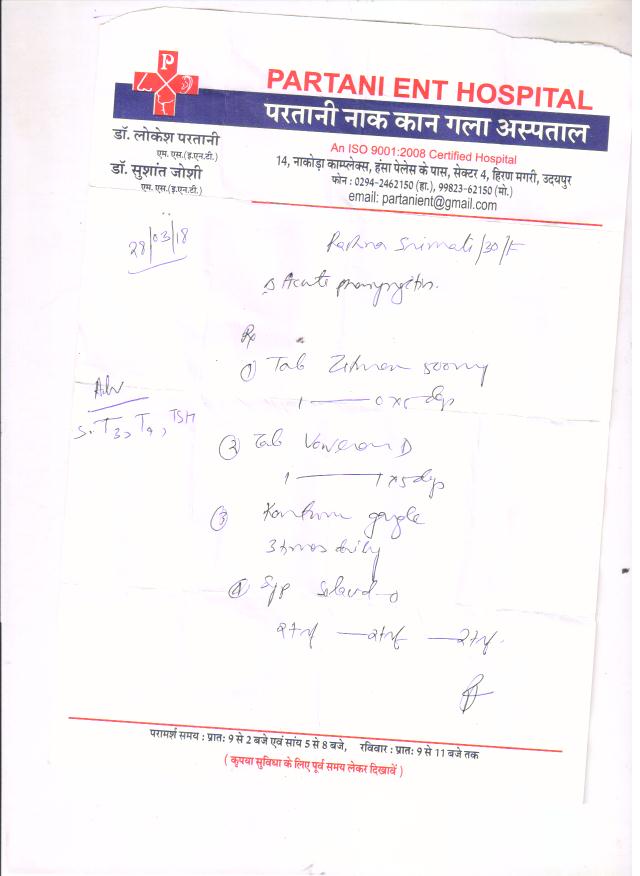 P
PARTANI ENT HOSPITAL
परतानी नाक कान गला अस्पताल
डॉ. लोकेश परतानी
एम. एस.(इ.एन.टी.)
डॉ. सुशांत जोशी
एम. एस.(इ.एन.टी.)
An ISO 9001:2008 Certified Hospital
14, नाकोड़ा काम्प्लेक्स, हंसा पेलेस के पास, सेक्टर 4, हिरण मगरी, उदयपुर
फोन : 0294-2462150 (हा.), 99823-62150 (मो.)
email: partanient@gmail.com
28/03/18
Srimati/30/F
Acute pharyngitis.
Rx
① Tab 500mg
1 — 0 x 5 days
Adv
S. T3, T4, TSH
② Tab Voveran D
1 — 1 x 5 days
③ gargle
3 times daily
④ Syp
2 tsf — 2 tsf — 2 tsf.
परामर्श समय : प्रात: 9 से 2 बजे एवं सांय 5 से 8 बजे, रविवार : प्रात: 9 से 11 बजे तक
( कृपया सुविधा के लिए पूर्व समय लेकर दिखावें )